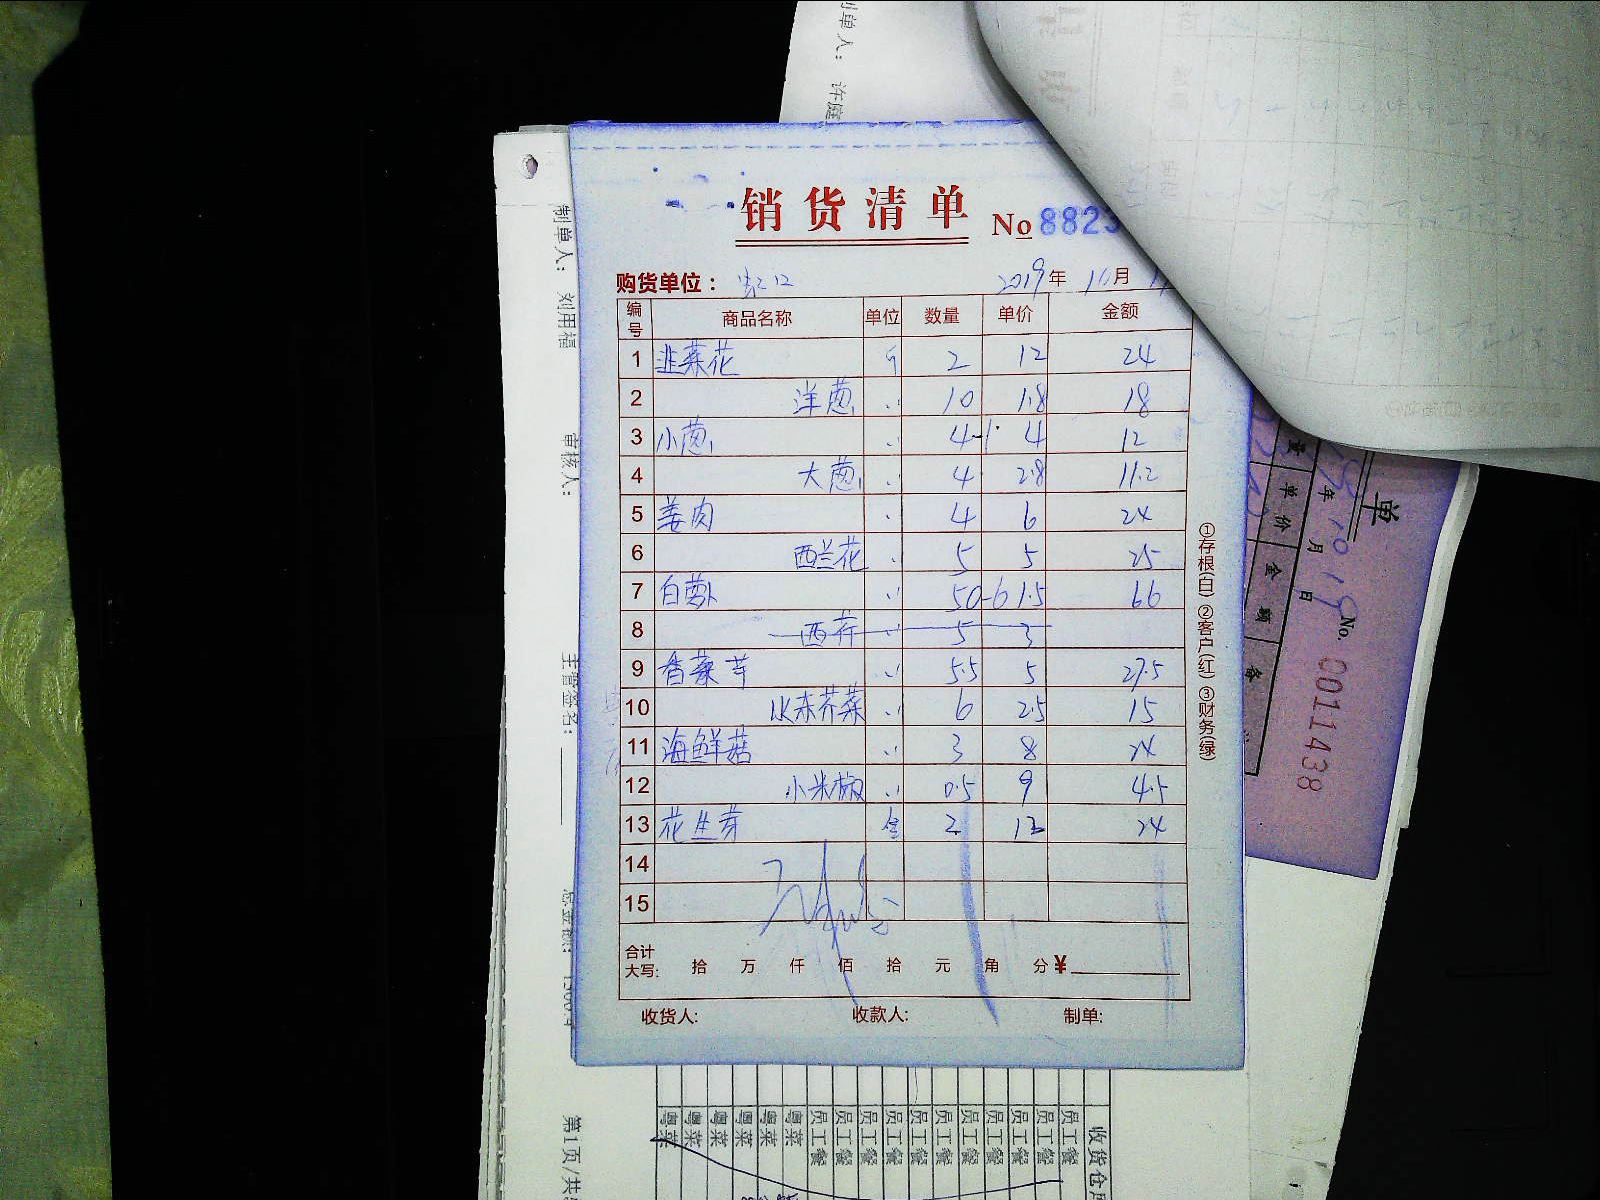 销货清单 No 8823
购货单位： 2019年 10月
编号 商品名称 单位 数量 单价 金额
1 韭菜花 斤 2 12 24
2 洋葱 10 1.8 18
3 小葱 4-1 4 12
4 大葱 4 2.8 11.2
5 姜肉 4 6 24
6 西兰花 5 5 25
7 白萝卜 50-6 1.5 66
8 西芹 5 3
9 香辣芋 5.5 5 27.5
10 水东芥菜 6 2.5 15
11 海鲜菇 3 8 24
12 小米椒 0.5 9 4.5
13 花生芽 盒 2 12 24
14
15
合计
大写: 拾 万 仟 佰 拾 元 角 分 ¥
收货人: 收款人: 制单:
①存根(白) ②客户(红) ③财务(绿)
制单人: 刘用福
审核人:
主管签名:
第1页/共
制单人: 许庭
单
年 10月 19日
量 单价 金额 备
No. 0011438
收货仓库
员工餐
员工餐
员工餐
员工餐
员工餐
员工餐
员工餐
员工餐
员工餐
员工餐
员工餐
粤菜
粤菜
粤菜
粤菜
粤菜
粤菜